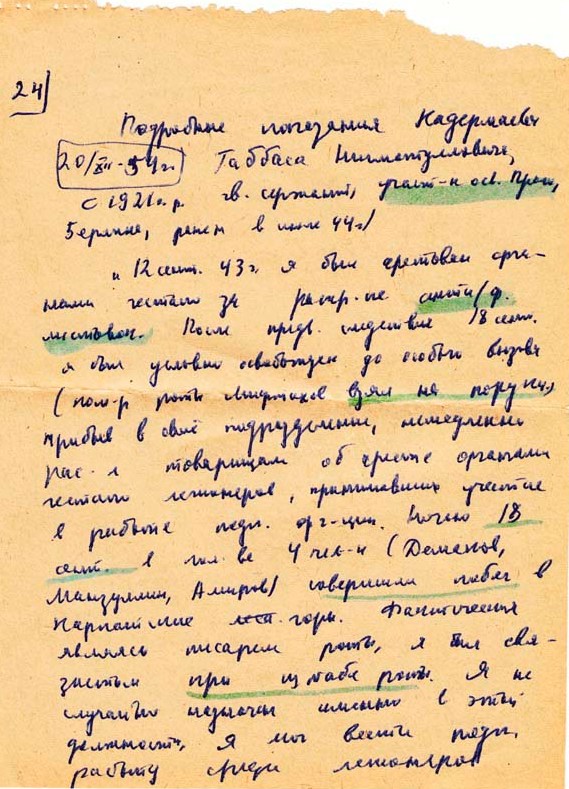 24)
Подробные показания Кадермаевич
20/XII-54 г. Габбаса Нигматулловича,
с 1921 г.р. гв. сержант, участ-к осв. Праги,
Берлина, ранен в июле 44 г.)
12 сент. 43 г. я был арестован орга-
нами гестапо за распр-ие анти/ф.
листовок. После предв. следствия 18 сент.
я был условно освобожден до особого вызова
(ком-р роты взял на поруки)
прибыв в свое подразделение, немедленно
рас-л товарищам об аресте органами
гестапо легионеров, принимавших участие
в работе подп. орг-ции. Ночью 18
сент. в кол-ве 4 чел-к (Деменов,
Манзуллин, Амиров) совершили побег в
Карпатские горы. Фактически
являясь писарем роты, я был свя-
зистом при штабе роты. Я не
случайно назначен именно в этой
должности, я мог вести подп.
работу среди легионеров